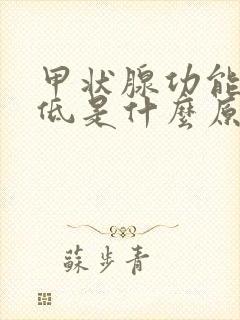 甲状腺功能
低是什麼原
蘇步青